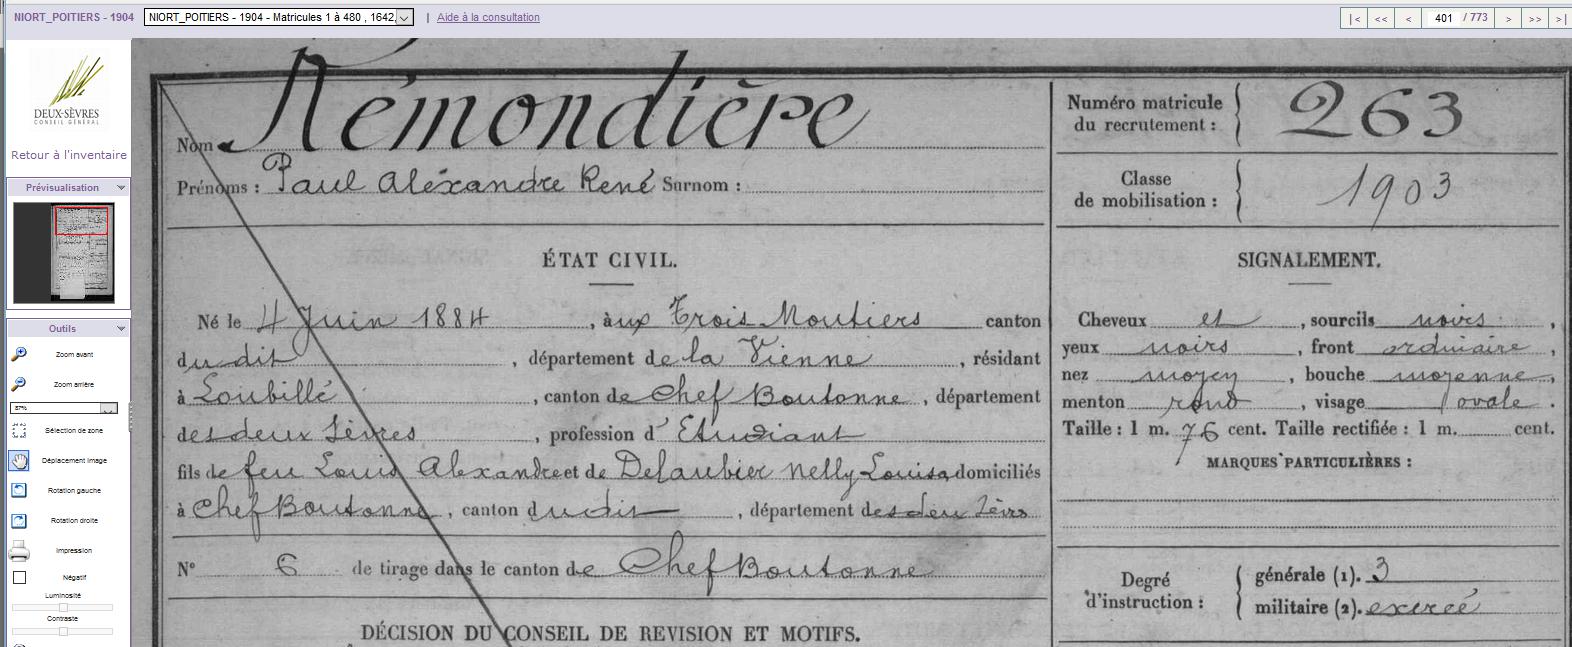 NIORT_POITIERS - 1904
NIORT_POITIERS - 1904 - Matricules 1 à 480 , 1642,
| Aide à la consultation
|< << < 401 / 773 > >> >|
DEUX-SÈVRES
CONSEIL GÉNÉRAL
Retour à l'inventaire
Prévisualisation
Outils
Zoom avant
Zoom arrière
87%
Sélection de zone
Déplacement image
Rotation gauche
Rotation droite
Impression
Négatif
Luminosité
Contraste
Nom Rémondière
Prénoms : Paul Alexandre René Surnom :
ÉTAT CIVIL.
Né le 4 Juin 1884 , à ux Trois Moutiers canton
du dit , département de la Vienne , résidant
à Loubillé , canton de Chef Boutonne , département
des deux Sèvres , profession d' Etudiant
fils de feu Louis Alexandre et de Delaubier Nelly Louisa domiciliés
à Chef Boutonne , canton dudit , département des deux Sèvres
N° 6 de tirage dans le canton de Chef Boutonne
DÉCISION DU CONSEIL DE REVISION ET MOTIFS.
Numéro matricule du recrutement : 263
Classe de mobilisation : 1903
SIGNALEMENT.
Cheveux et , sourcils noirs ,
yeux noirs , front ordinaire ,
nez moyen , bouche moyenne ,
menton rond , visage ovale .
Taille : 1 m. 76 cent. Taille rectifiée : 1 m. cent.
MARQUES PARTICULIÈRES :
Degré d'instruction :
générale (1). 3
militaire (2). exercé